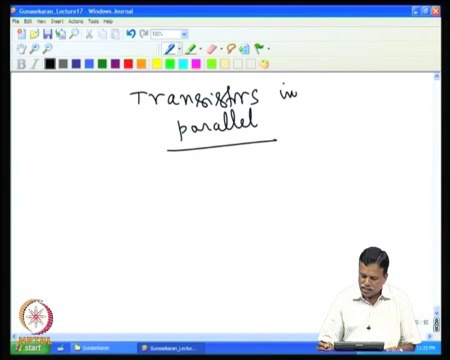 Gunasekaran_Lecture17 - Windows Journal
File Edit View Insert Actions Tools Help
100%
B I
Transistors in
parallel
NPTEL
start
Gunasekaran
Gunasekaran_Lectu...